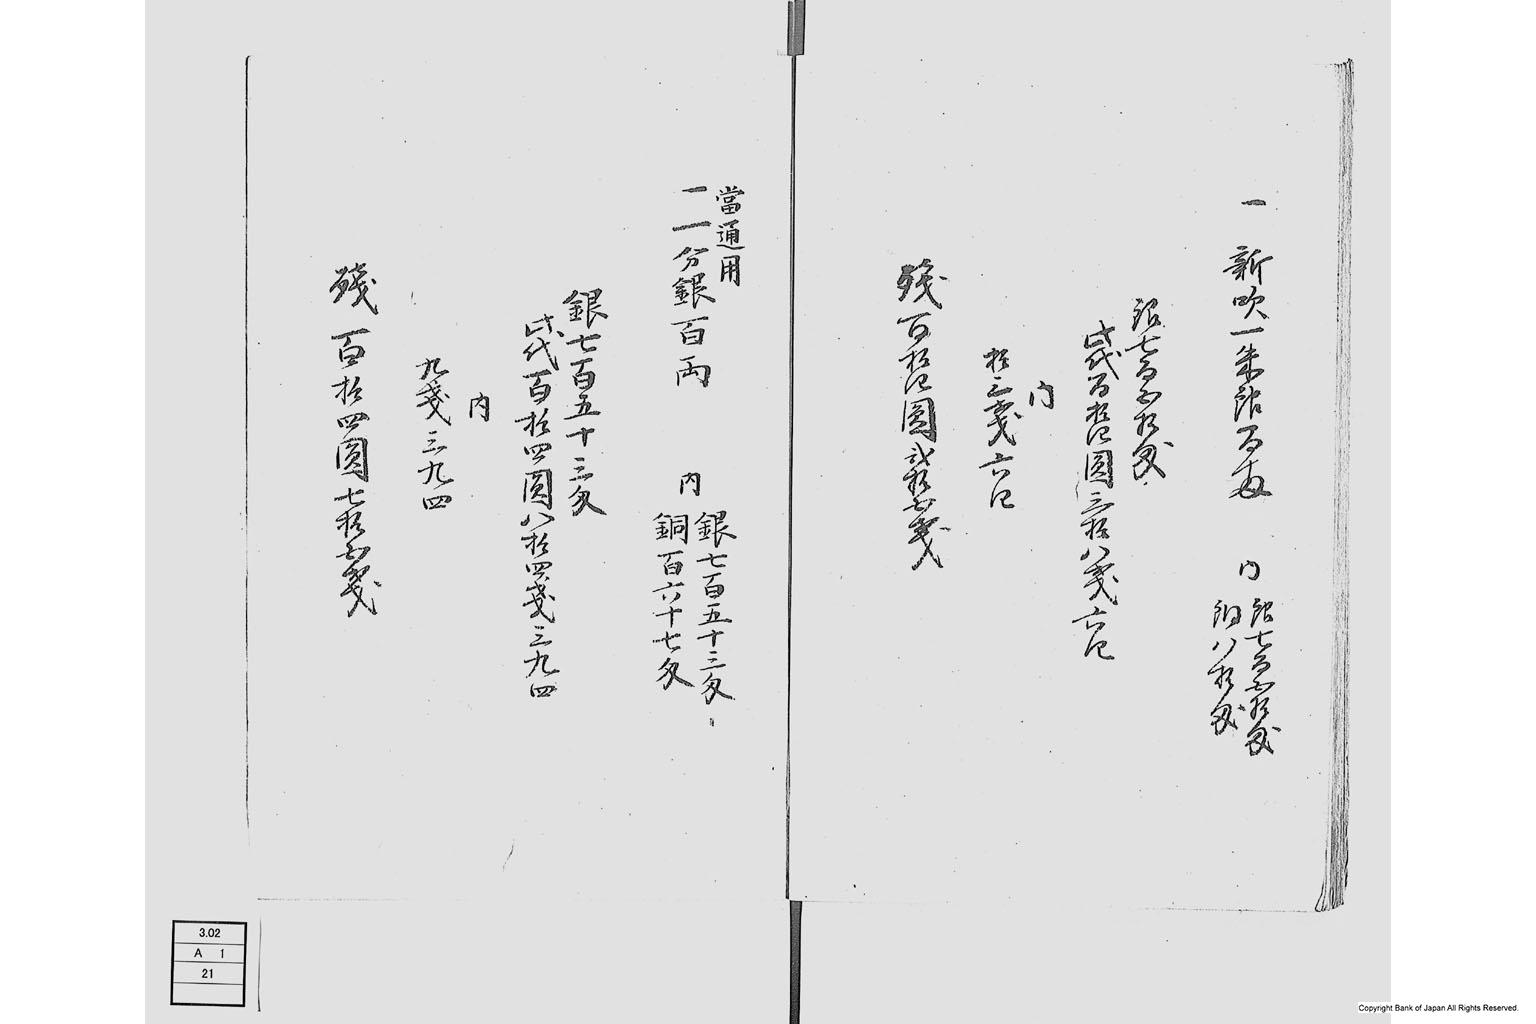 一 新吹一朱銀百両
内
銀七百五拾匁
銅八拾匁
銀七百五拾匁
此代百拾四圓三拾八戔六四
内
拾三戔六四
残百拾四圓弐拾五戔
當通用
一 一分銀百両
内
銀七百五十三匁
銅百六十七匁
銀七百五十三匁
此代百拾四圓八拾四戔三九四
内
九戔三九四
殘百拾四圓七拾五戔
3.02
A 1
21
Copyright Bank of Japan All Rights Reserved.